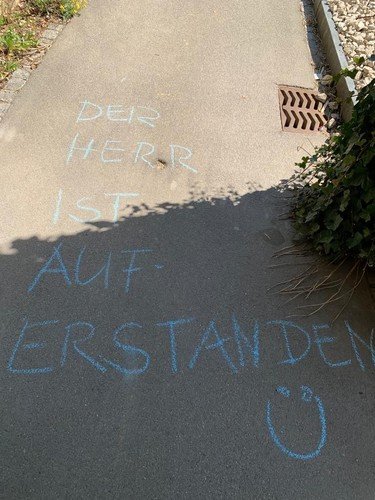 DER
HERR
IST
AUF-
ERSTANDEN